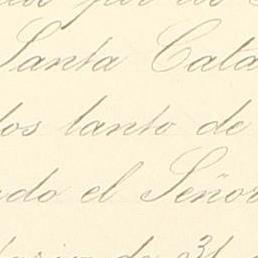 por los
Santa Cata
los tanto de
ndo el Señor
de 31